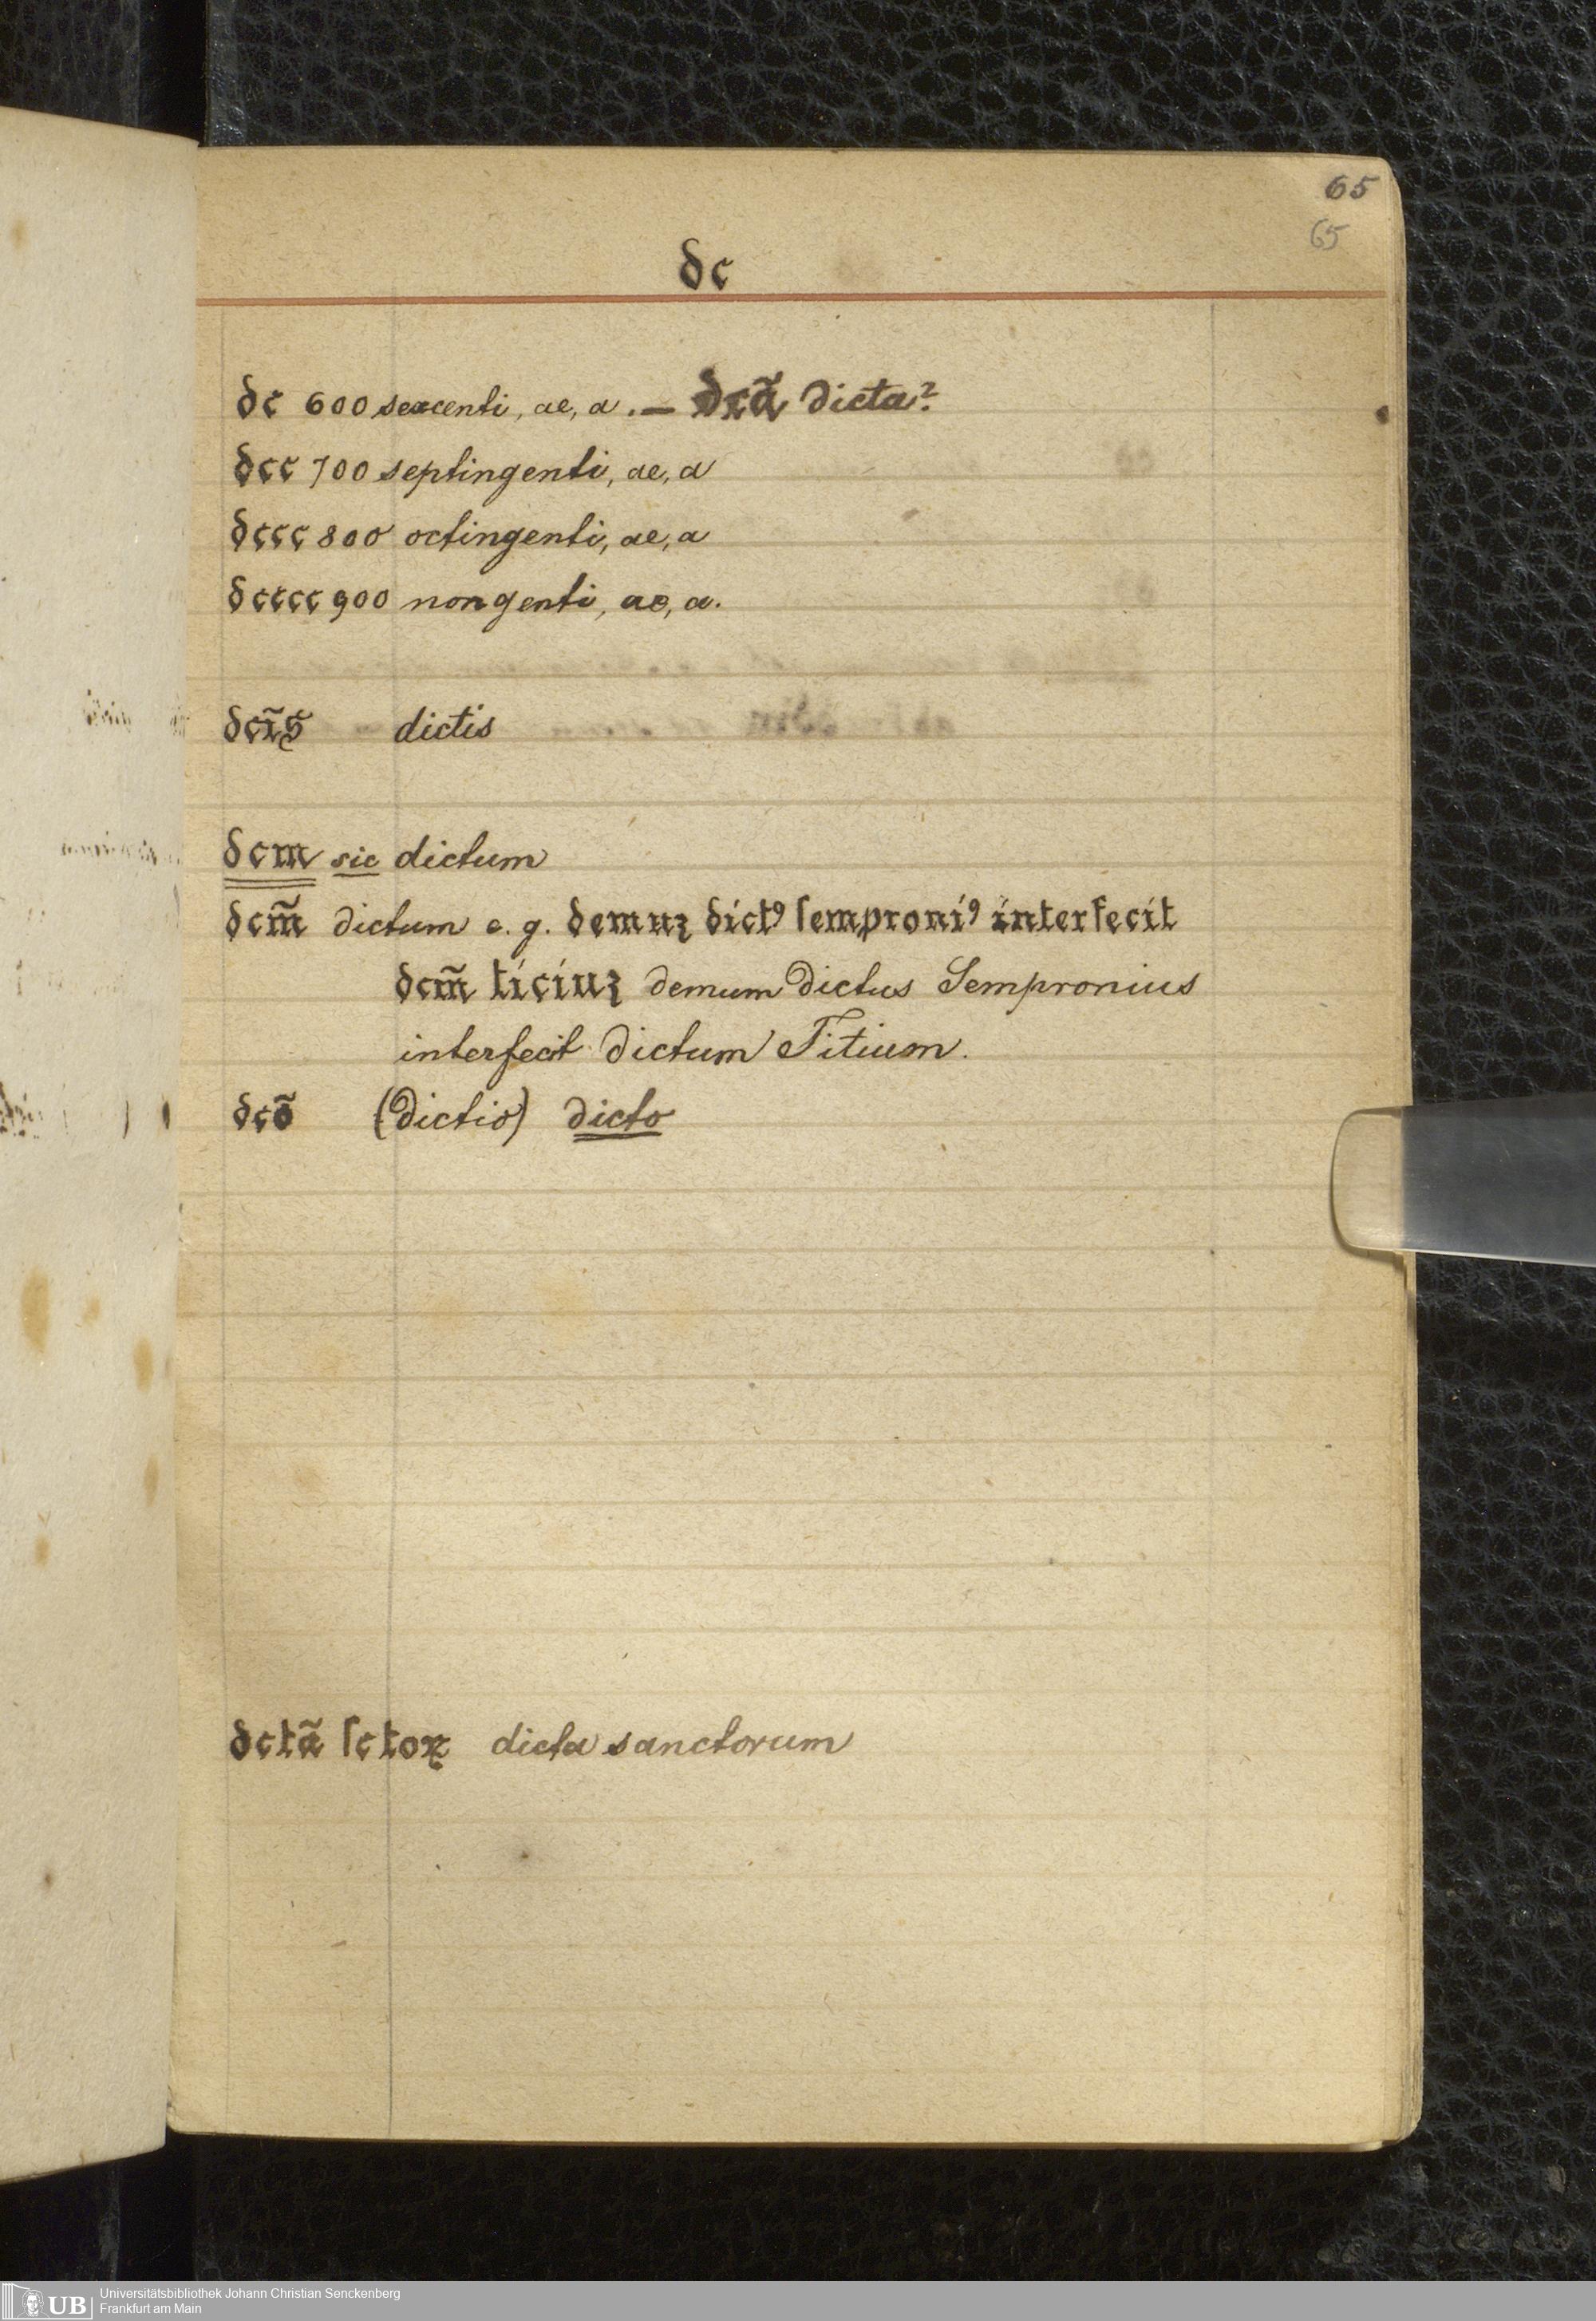 65
65
dc
dc 600 sexcenti, ae, a. – dcã dicta?
dcc 700 septingenti, ae, a
dccc 800 octingenti, ae, a
dcccc 900 nongenti, ae, a.
dcĩs dictis
dcm sic dictum
dcm̃ dictum e. g. demuꝫ dictꝰ ſemproniꝰ interfecit
dcm̃ ticiuꝫ demum dictus Sempronius
interfecit dictum Titium.
dcõ (dictio) dicto
dctã ſctoꝝ dicta sanctorum
UB Universitätsbibliothek Johann Christian Senckenberg
Frankfurt am Main